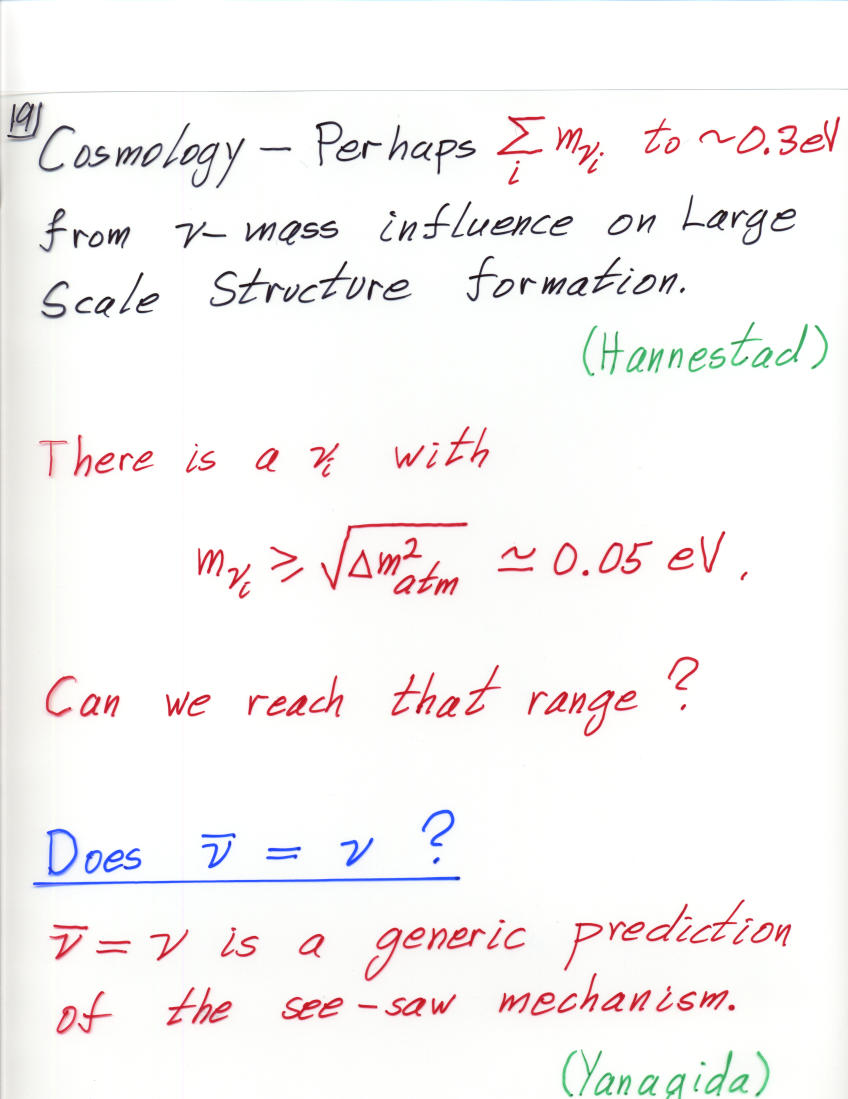 19)
Cosmology – Perhaps ∑ᵢ m_νᵢ to ~0.3eV
from ν-mass influence on Large
Scale Structure formation.
(Hannestad)
There is a νᵢ with
m_νᵢ ≥ √Δm²atm ≃ 0.05 eV.
Can we reach that range?
Does ν̅ = ν ?
ν̅ = ν is a generic prediction
of the see-saw mechanism.
(Yanagida)